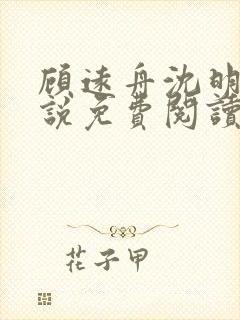 顾远舟沈明
說免費閱讀
花子甲